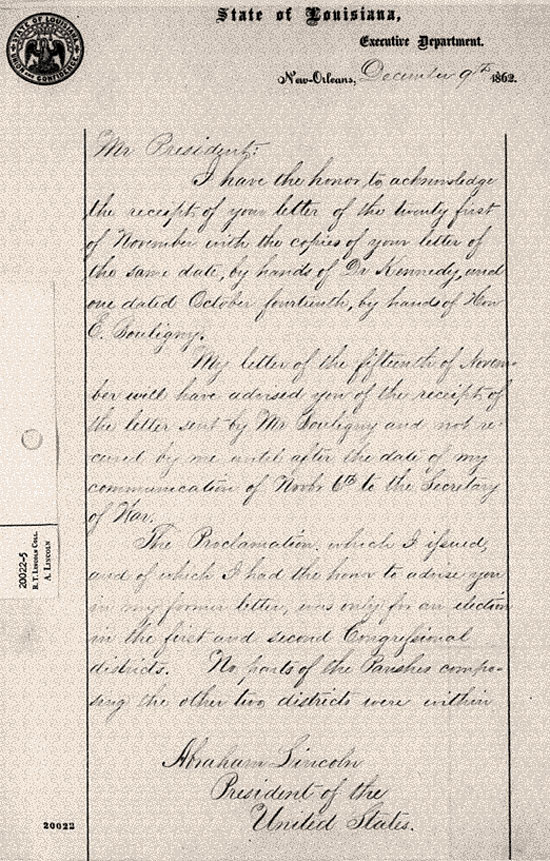 STATE OF LOUISIANA
UNION AND CONFIDENCE
State of Louisiana,
Executive Department.
New-Orleans, December 9th 1862.
Mr President:
I have the honor to acknowledge
the receipt of your letter of the twenty first
of November with the copies of your letter of
the same date, by hands of Dr Kennedy, and
one dated October fourteenth, by hands of Hon
E. Bouligny.
My letter of the fifteenth of Novem-
ber will have advised you of the receipt of
the letter sent by Mr Bouligny and not re-
ceived by me until after the date of my
communication of Novbr 6th to the Secretary
of War.
The Proclamation, which I issued,
and of which I had the honor to advise you
in my former letter, was only for an election
in the first and second Congressional
districts. No parts of the Parishes compo-
sing the other two districts were within
Abraham Lincoln
President of the
United States.
20022-5
R. T. LINCOLN COLL.
A. LINCOLN
20022